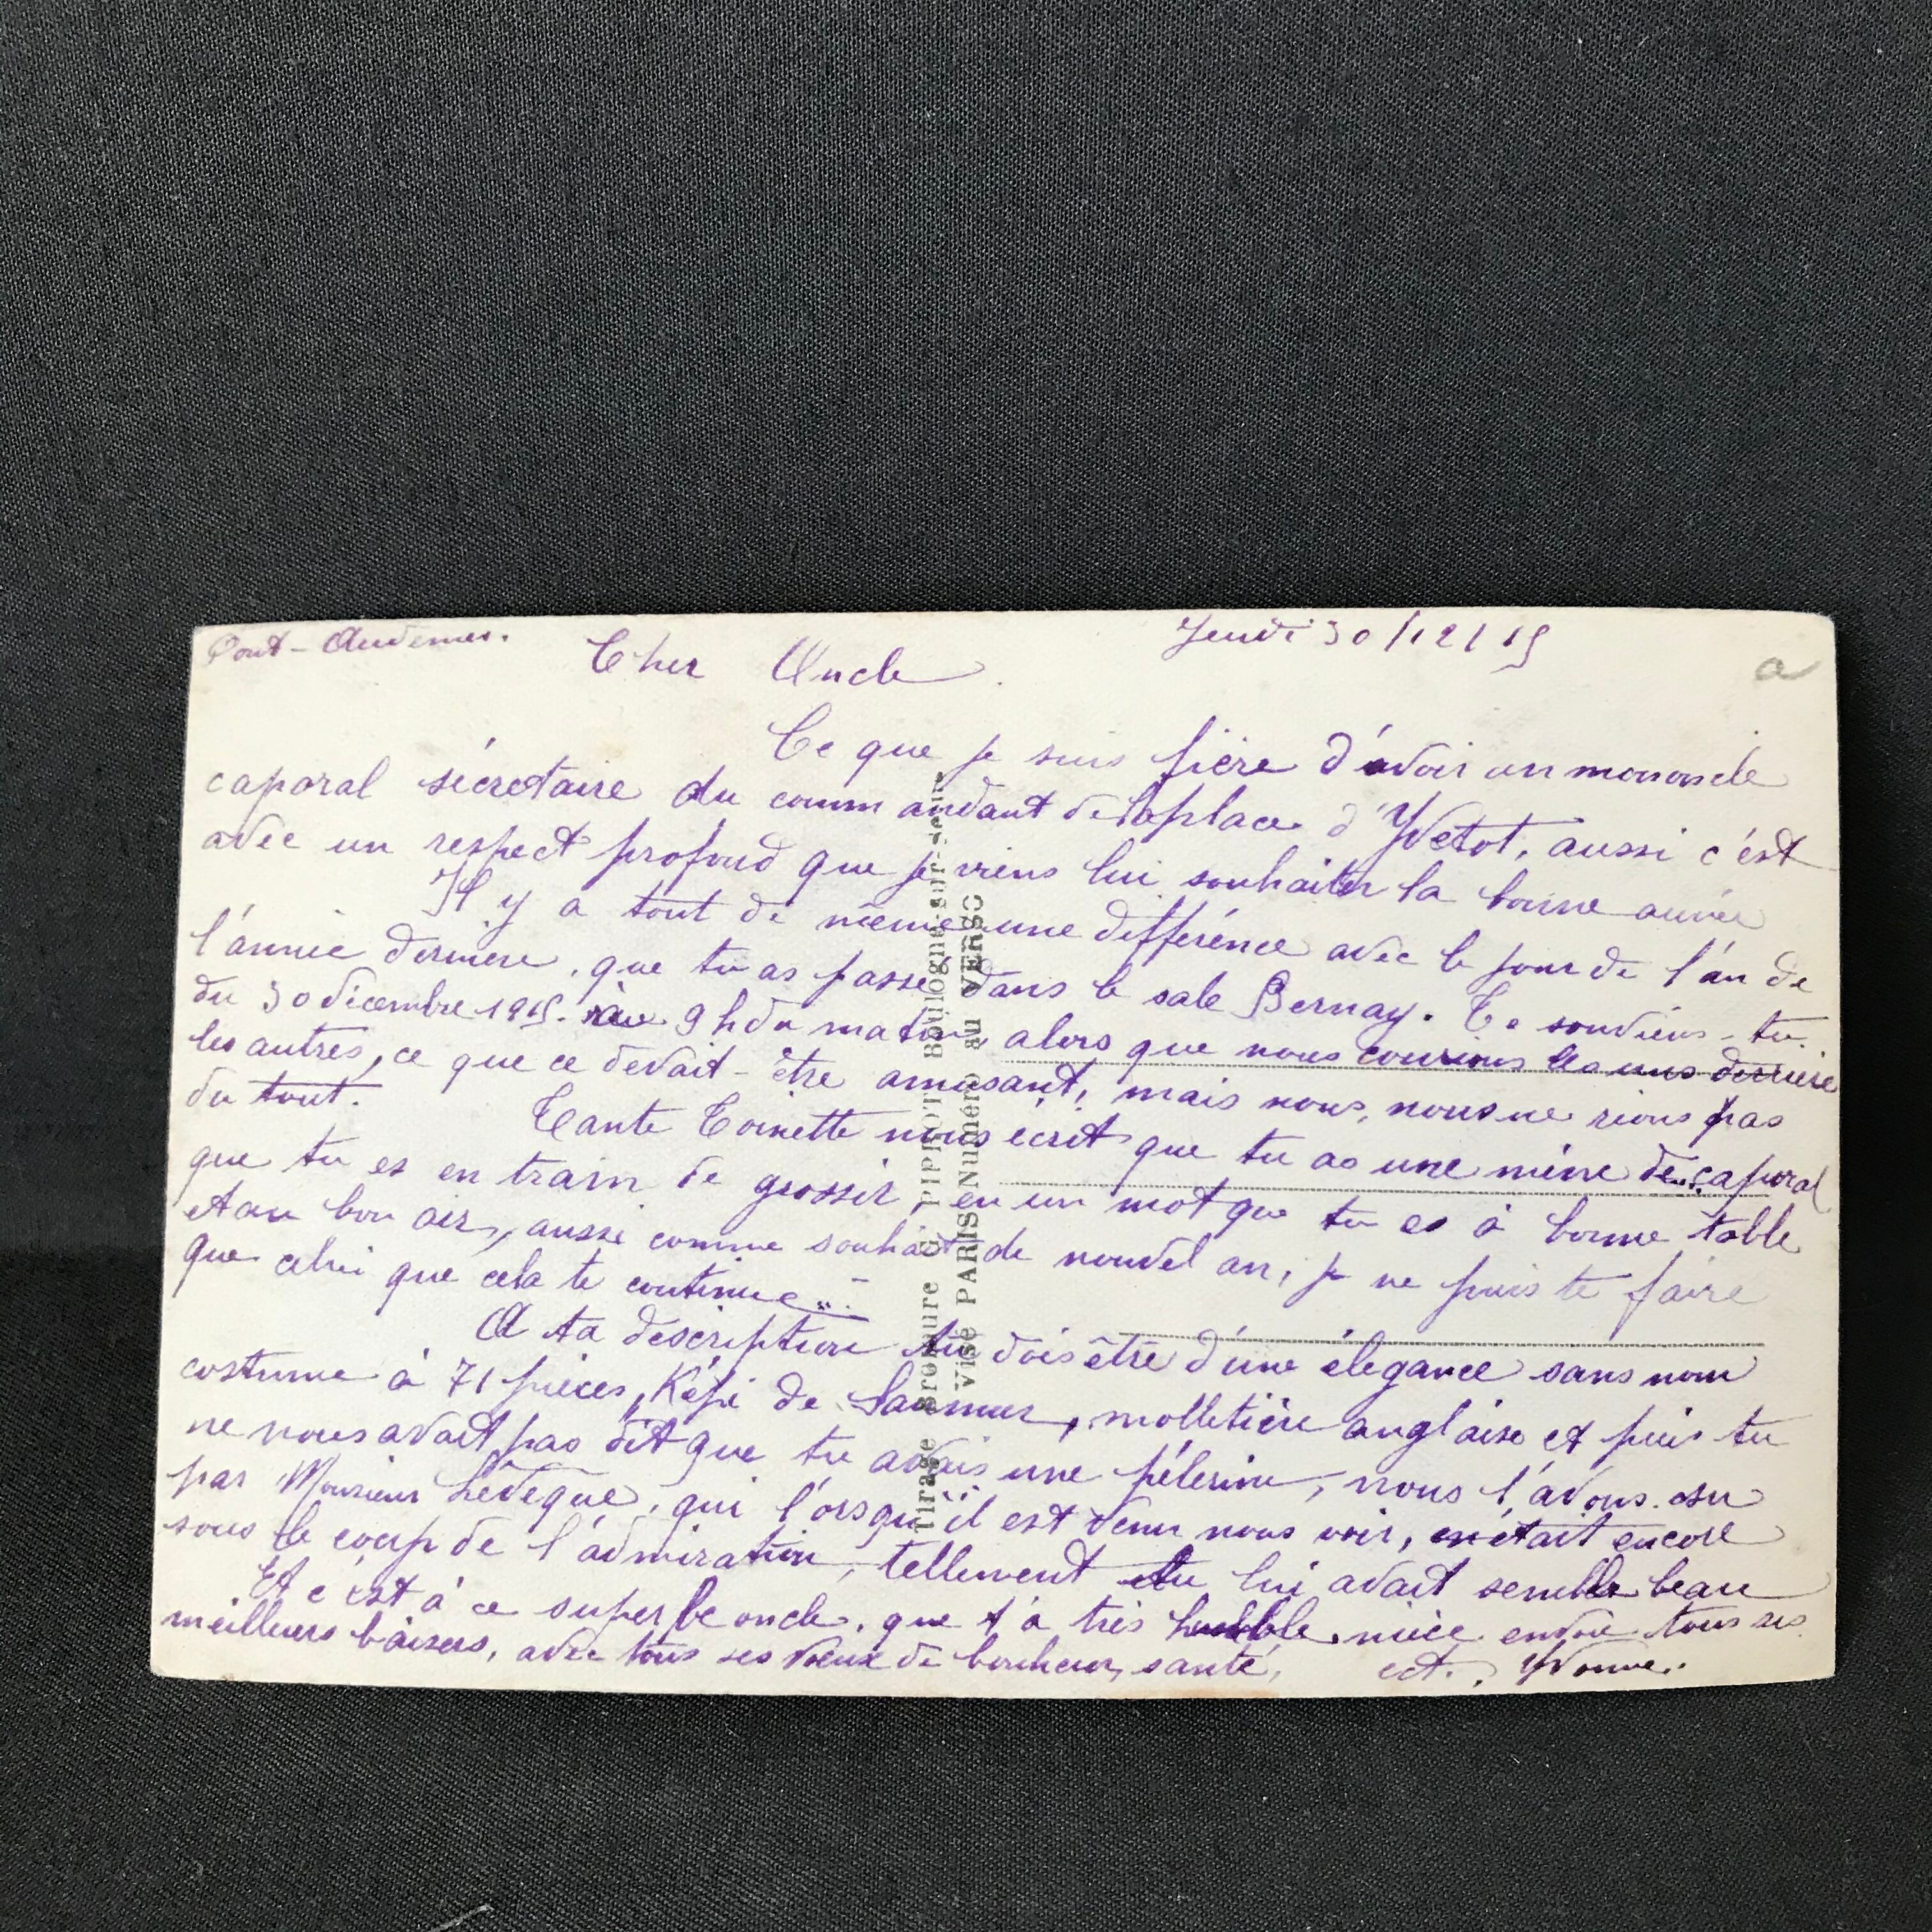 Pont-Audemer.
Jeudi 30/12/15
a
Cher Oncle
Ce que je suis fière d'avoir un mononcle
caporal sécretaire du commandant de la place d'Yvetot, aussi c'est
avec un respect profond que je viens lui souhaiter la bonne année
Il y a tout de même une différence avec le jour de l'an de
l'année dernière, que tu as passé dans le sale Bernay. Te souviens-tu
du 30 décembre 1915. 9 h du matin, alors que nous courions les uns derrière
les autres, ce que ce devait-être amusant, mais nous, nous ne rions pas
du tout.
Tante Toinette nous écrit que tu as une mine de caporal
que tu es en train de grossir, en un mot que tu es à bonne table
et au bon air, aussi comme souhait de nouvel an, je ne puis te faire
que celui que cela te continue...
A ta description tu dois être d'une élégance sans nom
costume à 71 pièces, Képi de Saumur, molletière anglaise et puis tu
ne nous avait pas dit que tu avais une pélerine, nous l'avons su
par Monsieur Levêque, qui l'orsqu'il est venu nous voir, en était encore
sous le coup de l'admiration, tellement tu lui avait semblé beau
Et c'est à ce superbe oncle, que ta très humble nièce envoie tous ses
meilleurs baisers, avec tous ses vœux de bonheur, santé, ect. Yvonne.
Tirage Bromure G. PIPROT Boulogne-sur-seine
Visé PARIS Numéro au VERSO